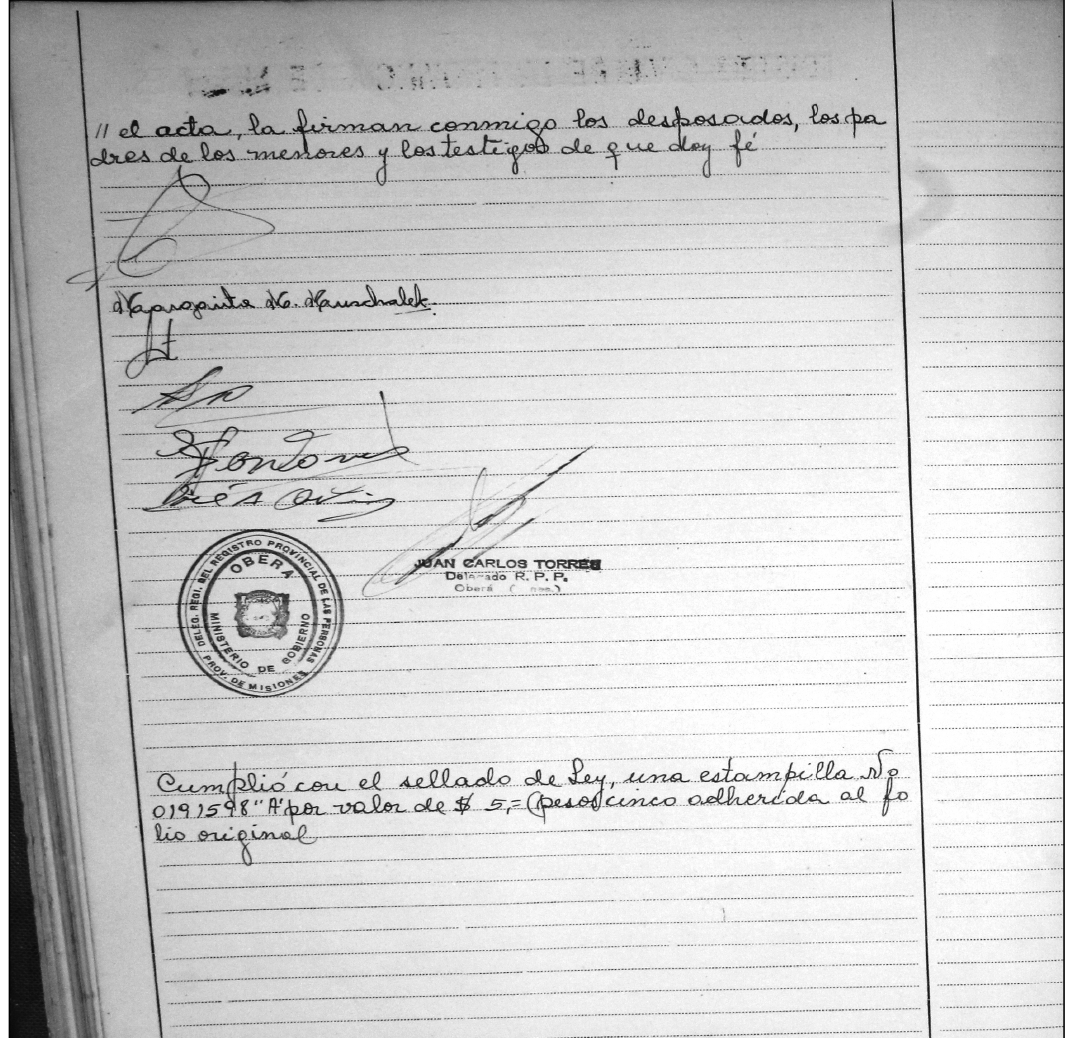 // el acta, la firman conmigo los desposados, los pa
dres de los menores y los testigos de que doy fé
Margarita M.
JUAN CARLOS TORRES
Delegado R. P. P.
Oberá
DELEG. REGI. DEL REGISTRO PROVINCIAL DE LAS PERSONAS
OBERA
MINISTERIO DE GOBIERNO
PROV. DE MISIONES
Cumplió con el sellado de Ley, una estampilla No
0191598 "A" por valor de $ 5,= (pesos cinco adherida al fo
lio original